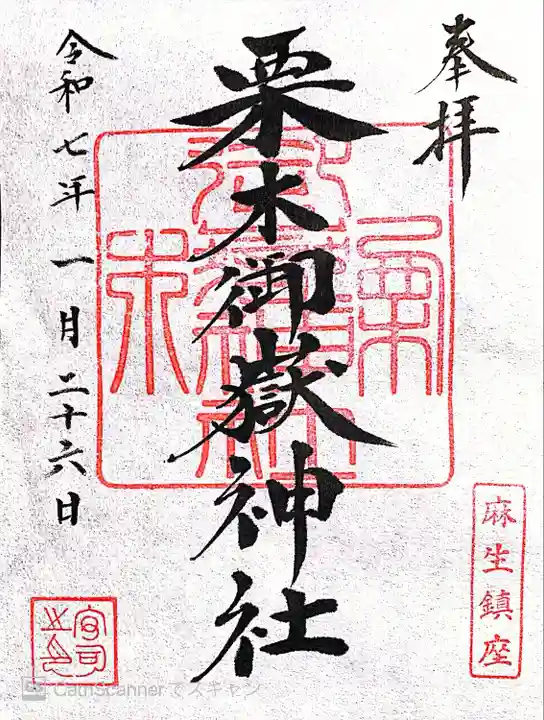 奉拝
栗木御嶽神社
令和七年一月二十六日
麻生鎮座
宮司之印
CamScannerでスキャン